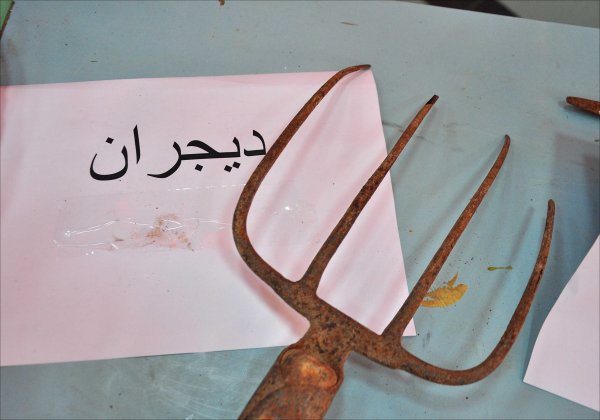 ديجران